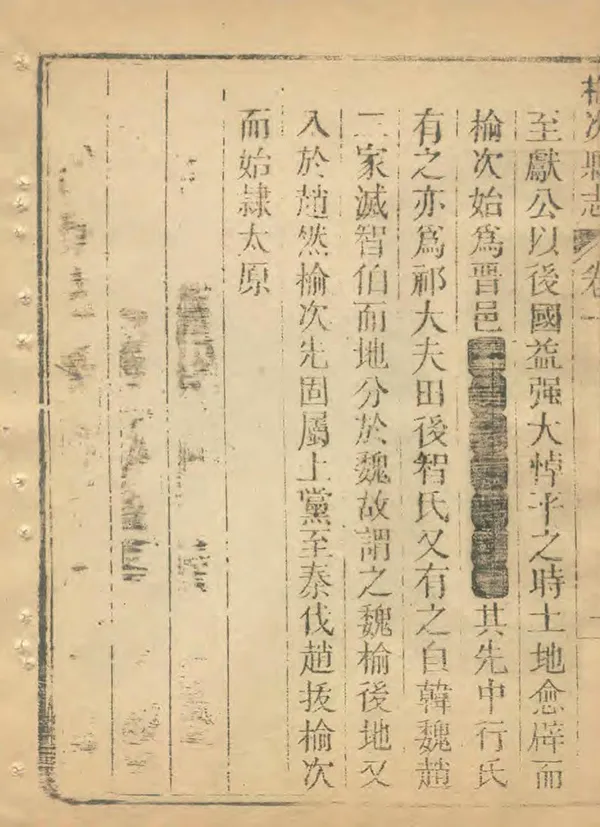 榆次縣志 卷一
至獻公以後國益强大悼平之時土地愈辟而
榆次始爲晋邑 其先中行氏
有之亦爲祁大夫田後智氏又有之自韓魏趙
三家滅智伯而地分於魏故謂之魏榆後地又
入於趙然榆次先固屬上黨至秦伐趙拔榆次
而始隸太原